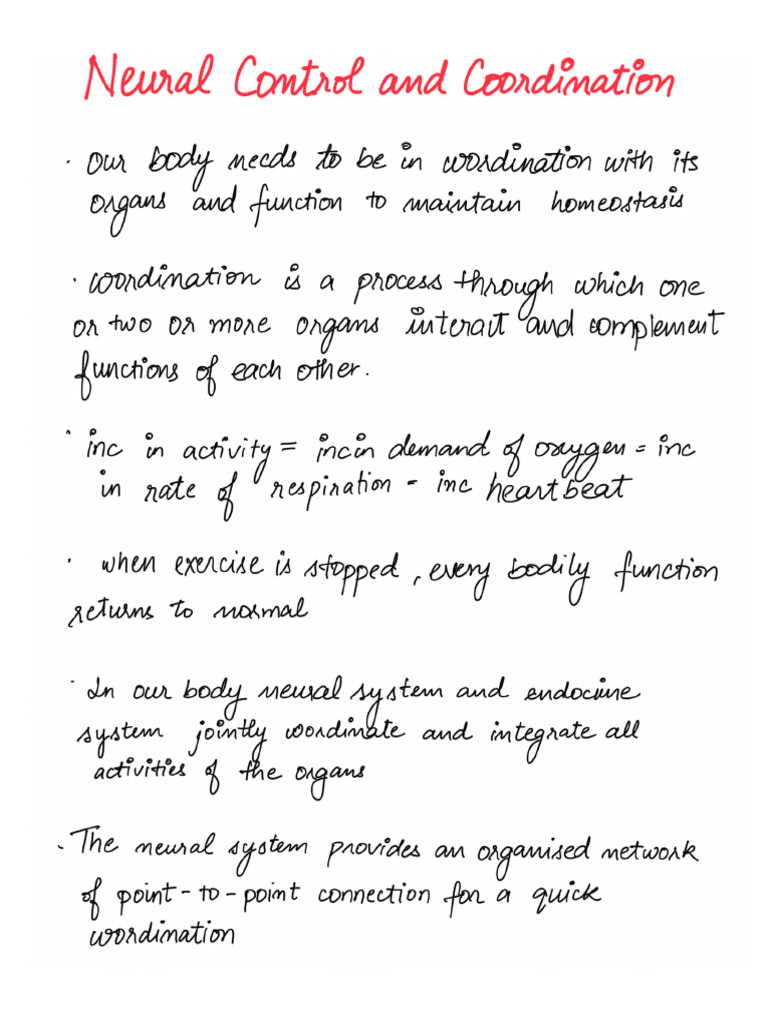 Neural Control and Coordination
· Our body needs to be in coordination with its
organs and function to maintain homeostasis
· coordination is a process through which one
or two or more organs interact and complement
functions of each other.
· inc in activity = inc in demand of oxygen = inc
in rate of respiration = inc heart beat
· when exercise is stopped, every bodily function
returns to normal
· In our body neural system and endocrine
system jointly coordinate and integrate all
activities of the organs
· The neural system provides an organised network
of point-to-point connection for a quick
coordination